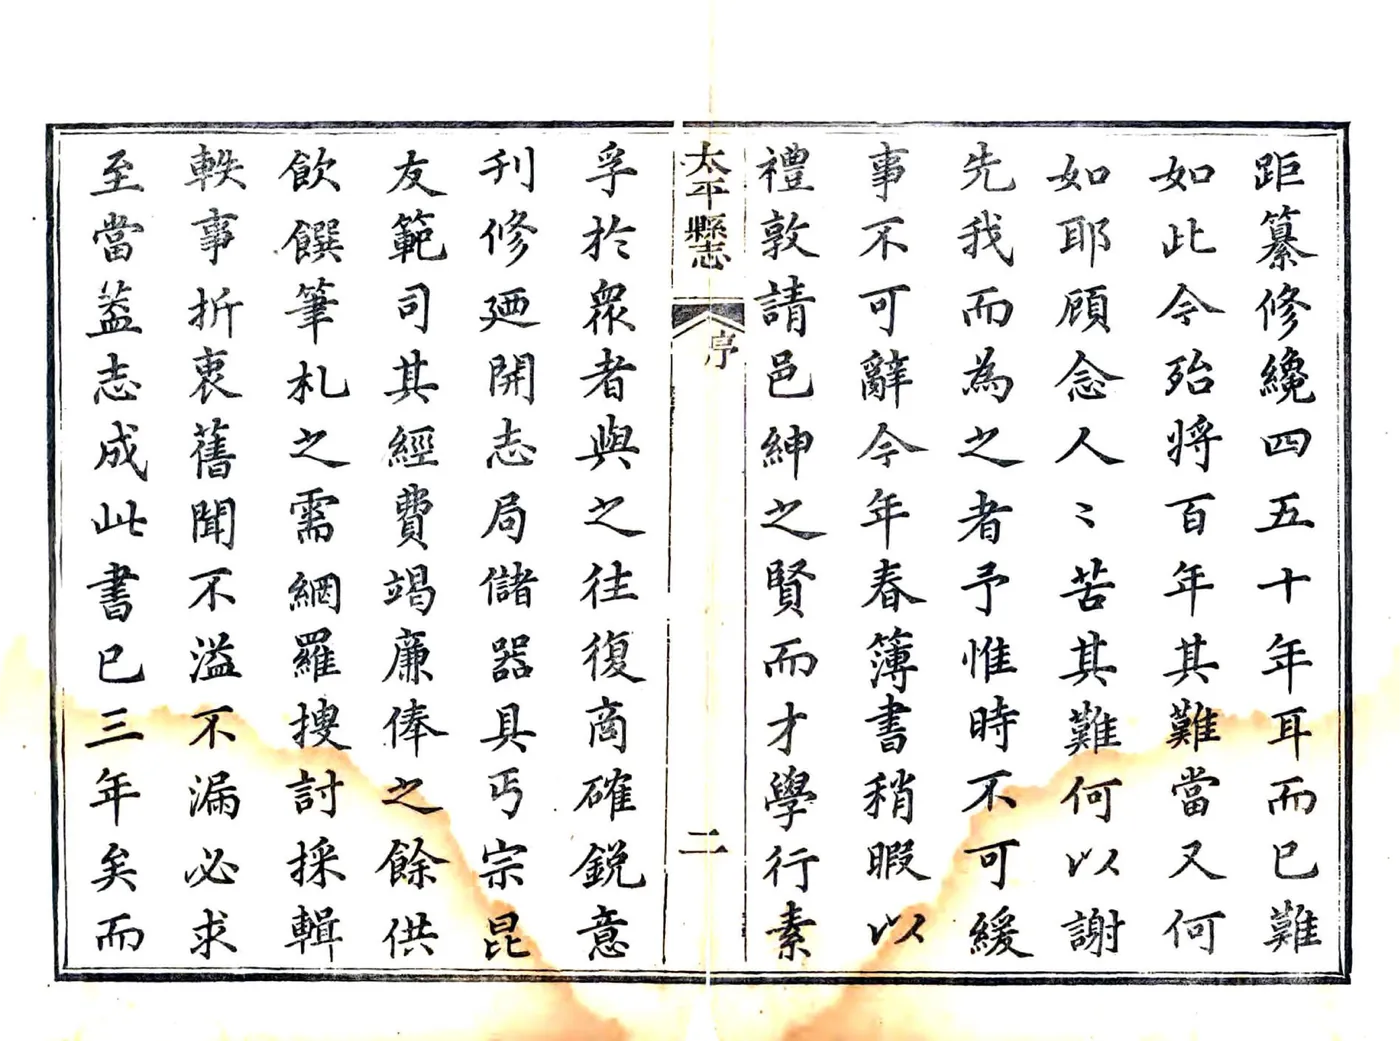 距纂修纔四五十年耳而已難
如此今殆將百年其難當又何
如耶顧念人〻苦其難何以謝
先我而為之者予惟時不可緩
事不可辭今年春簿書稍暇以
禮敦請邑紳之賢而才學行素
太平縣志 序 二
孚於衆者與之往復商確鋭意
刊修廼開志局儲器具丐宗昆
友範司其經費竭廉俸之餘供
飲饌筆札之需網羅搜討採輯
軼事折衷舊聞不溢不漏必求
至當葢志成此書已三年矣而